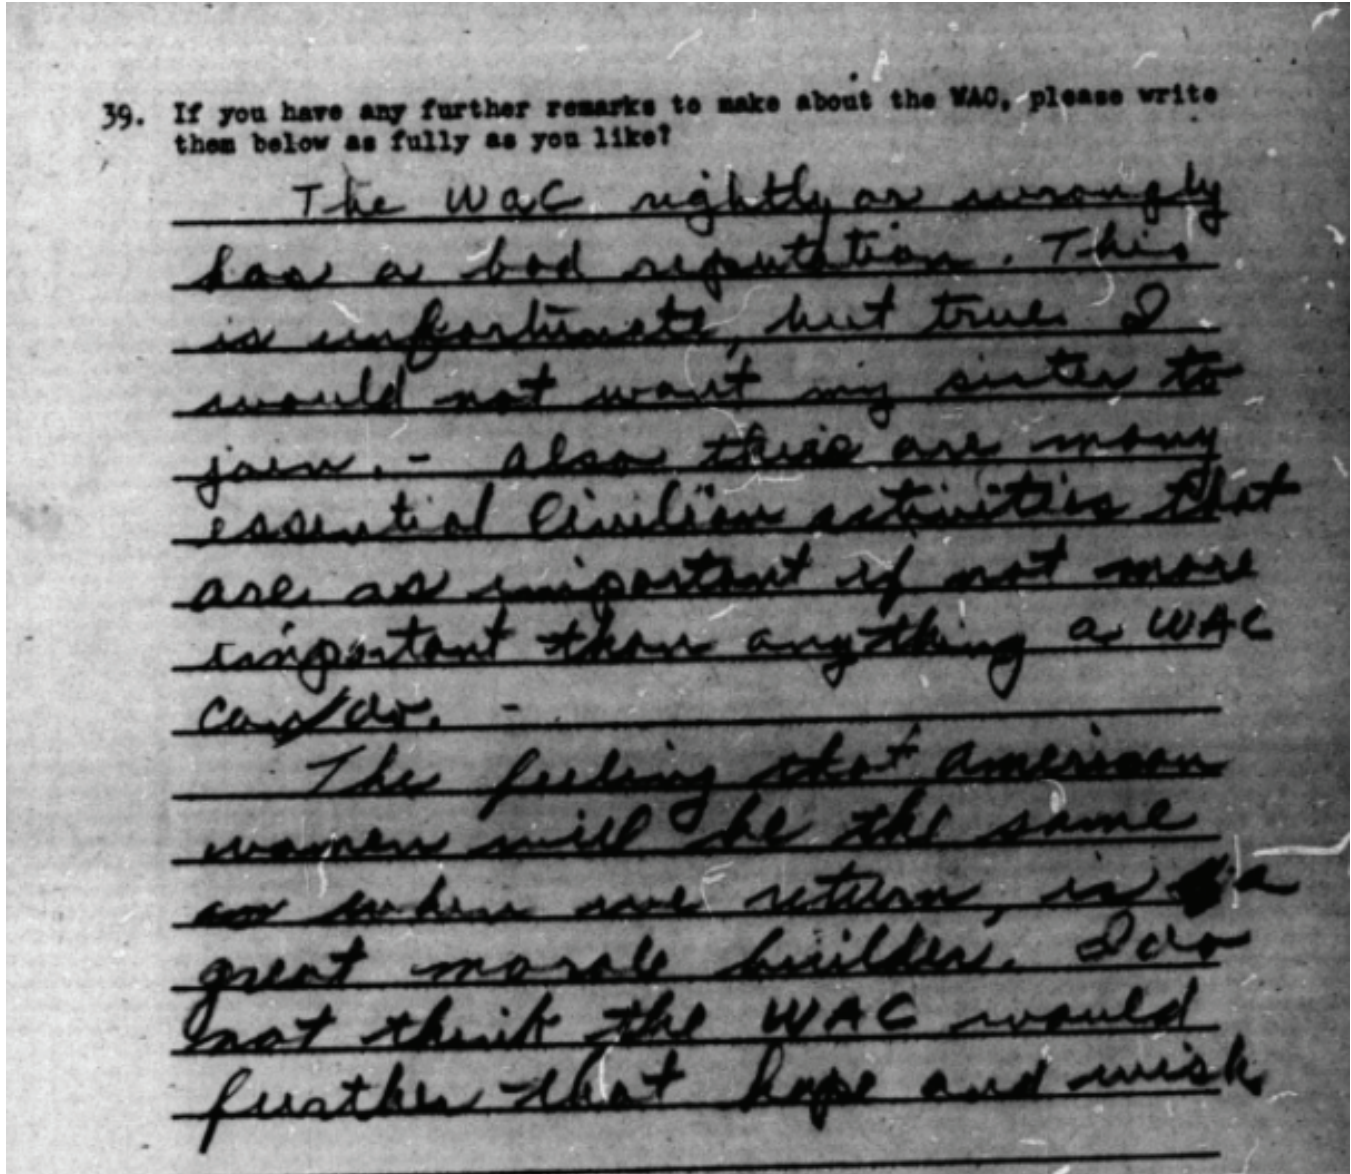 39. If you have any further remarks to make about the WAC, please write
them below as fully as you like?
The WaC rightly or wrongly
has a bad reputation. This
is unfortunate, but true. I
would not want my sister to
join. - Also there are many
essential Civilian activities that
are as important if not more
important than anything a WAC
can do. -
The feeling that American
women will be the same
as when we return, is a
great morale builder. I do
not think the WAC would
further that hope and wish